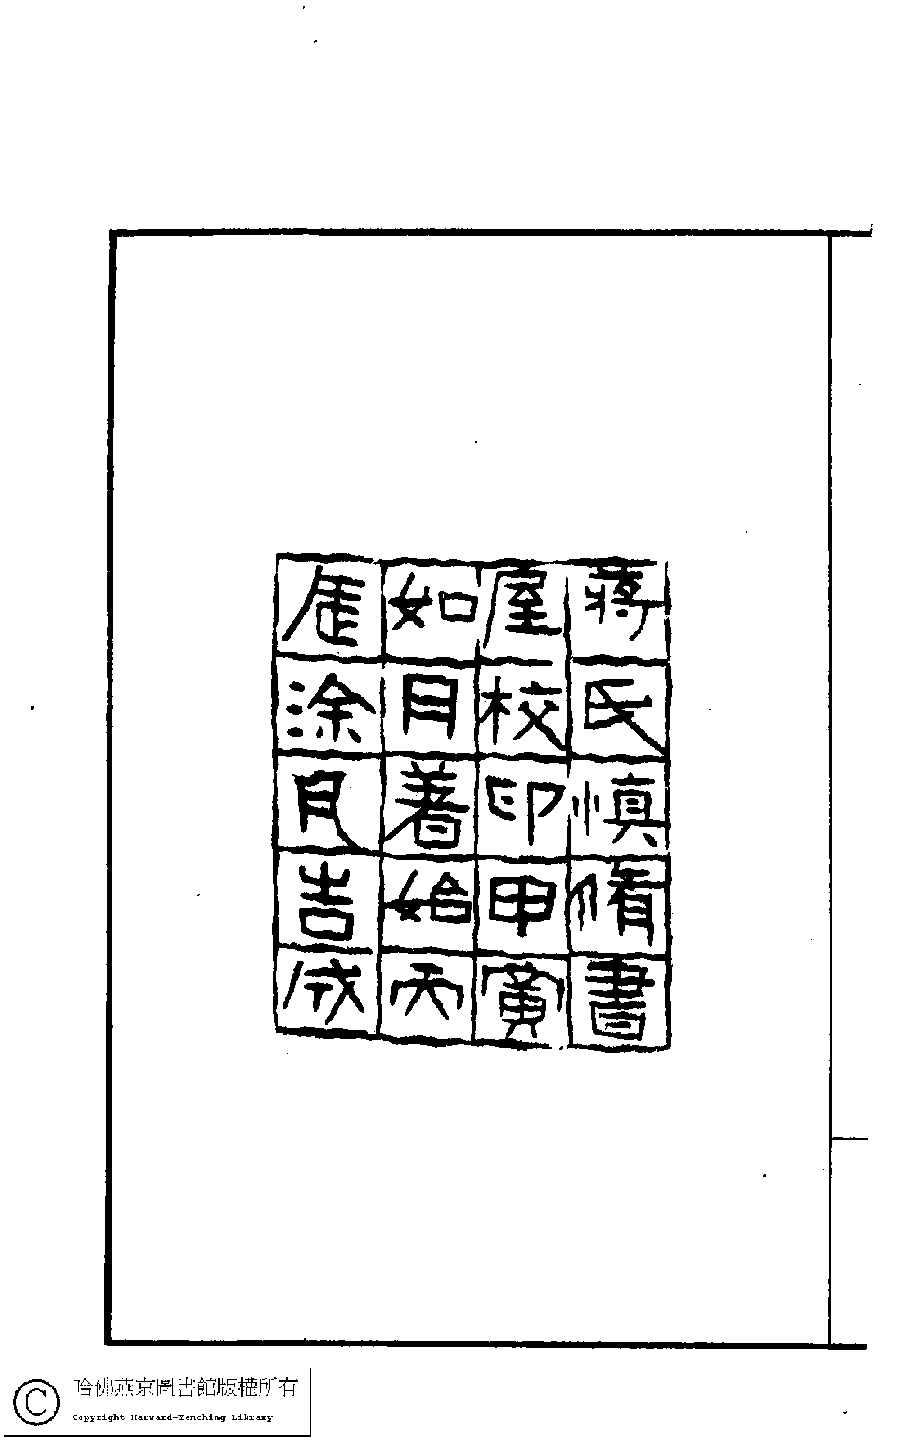 蔣氏慎脩書
屋校印甲寅
如月著始丙
辰涂月吉成
哈佛燕京圖書館版權所有
Copyright Harvard-Yenching Library